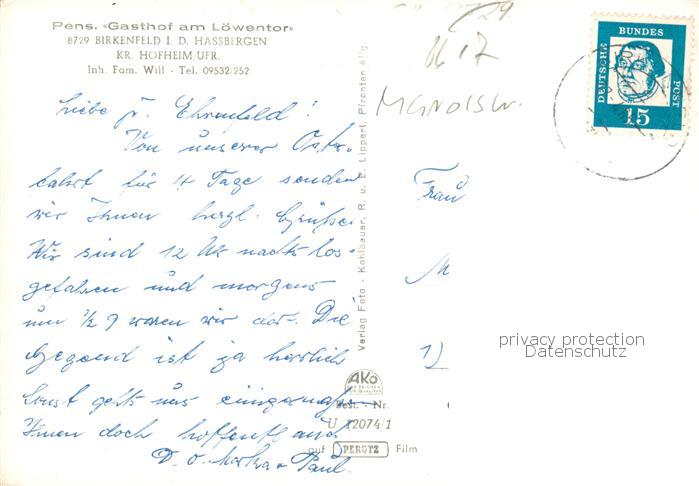 Pens. «Gasthof am Löwentor»
8729 BIRKENFELD I. D. HASSBERGEN
KR. HOFHEIM UFR.
Inh. Fam. Will - Tel. 09532/252
Liebe Fr. Ehrenfeld!
Von unserer Oster-
fahrt für 14 Tage senden
wir Ihnen herzl. Grüße.
Wir sind 12 Uhr nachts los-
gefahren und morgens
um ½ 9 waren wir dort. Die
Gegend ist ja herrlich
Sonst geht's uns einigermaßen
Ihnen doch hoffentl. auch
Paul.
Verlag Foto - Kohlbauer, R. u. E. Lippert, Pfronten Allg.
AKO
Best. - Nr.
U 12074/1
auf PERUTZ Film
DEUTSCHE
BUNDES
POST
15
Frau
M
privacy protection
Datenschutz